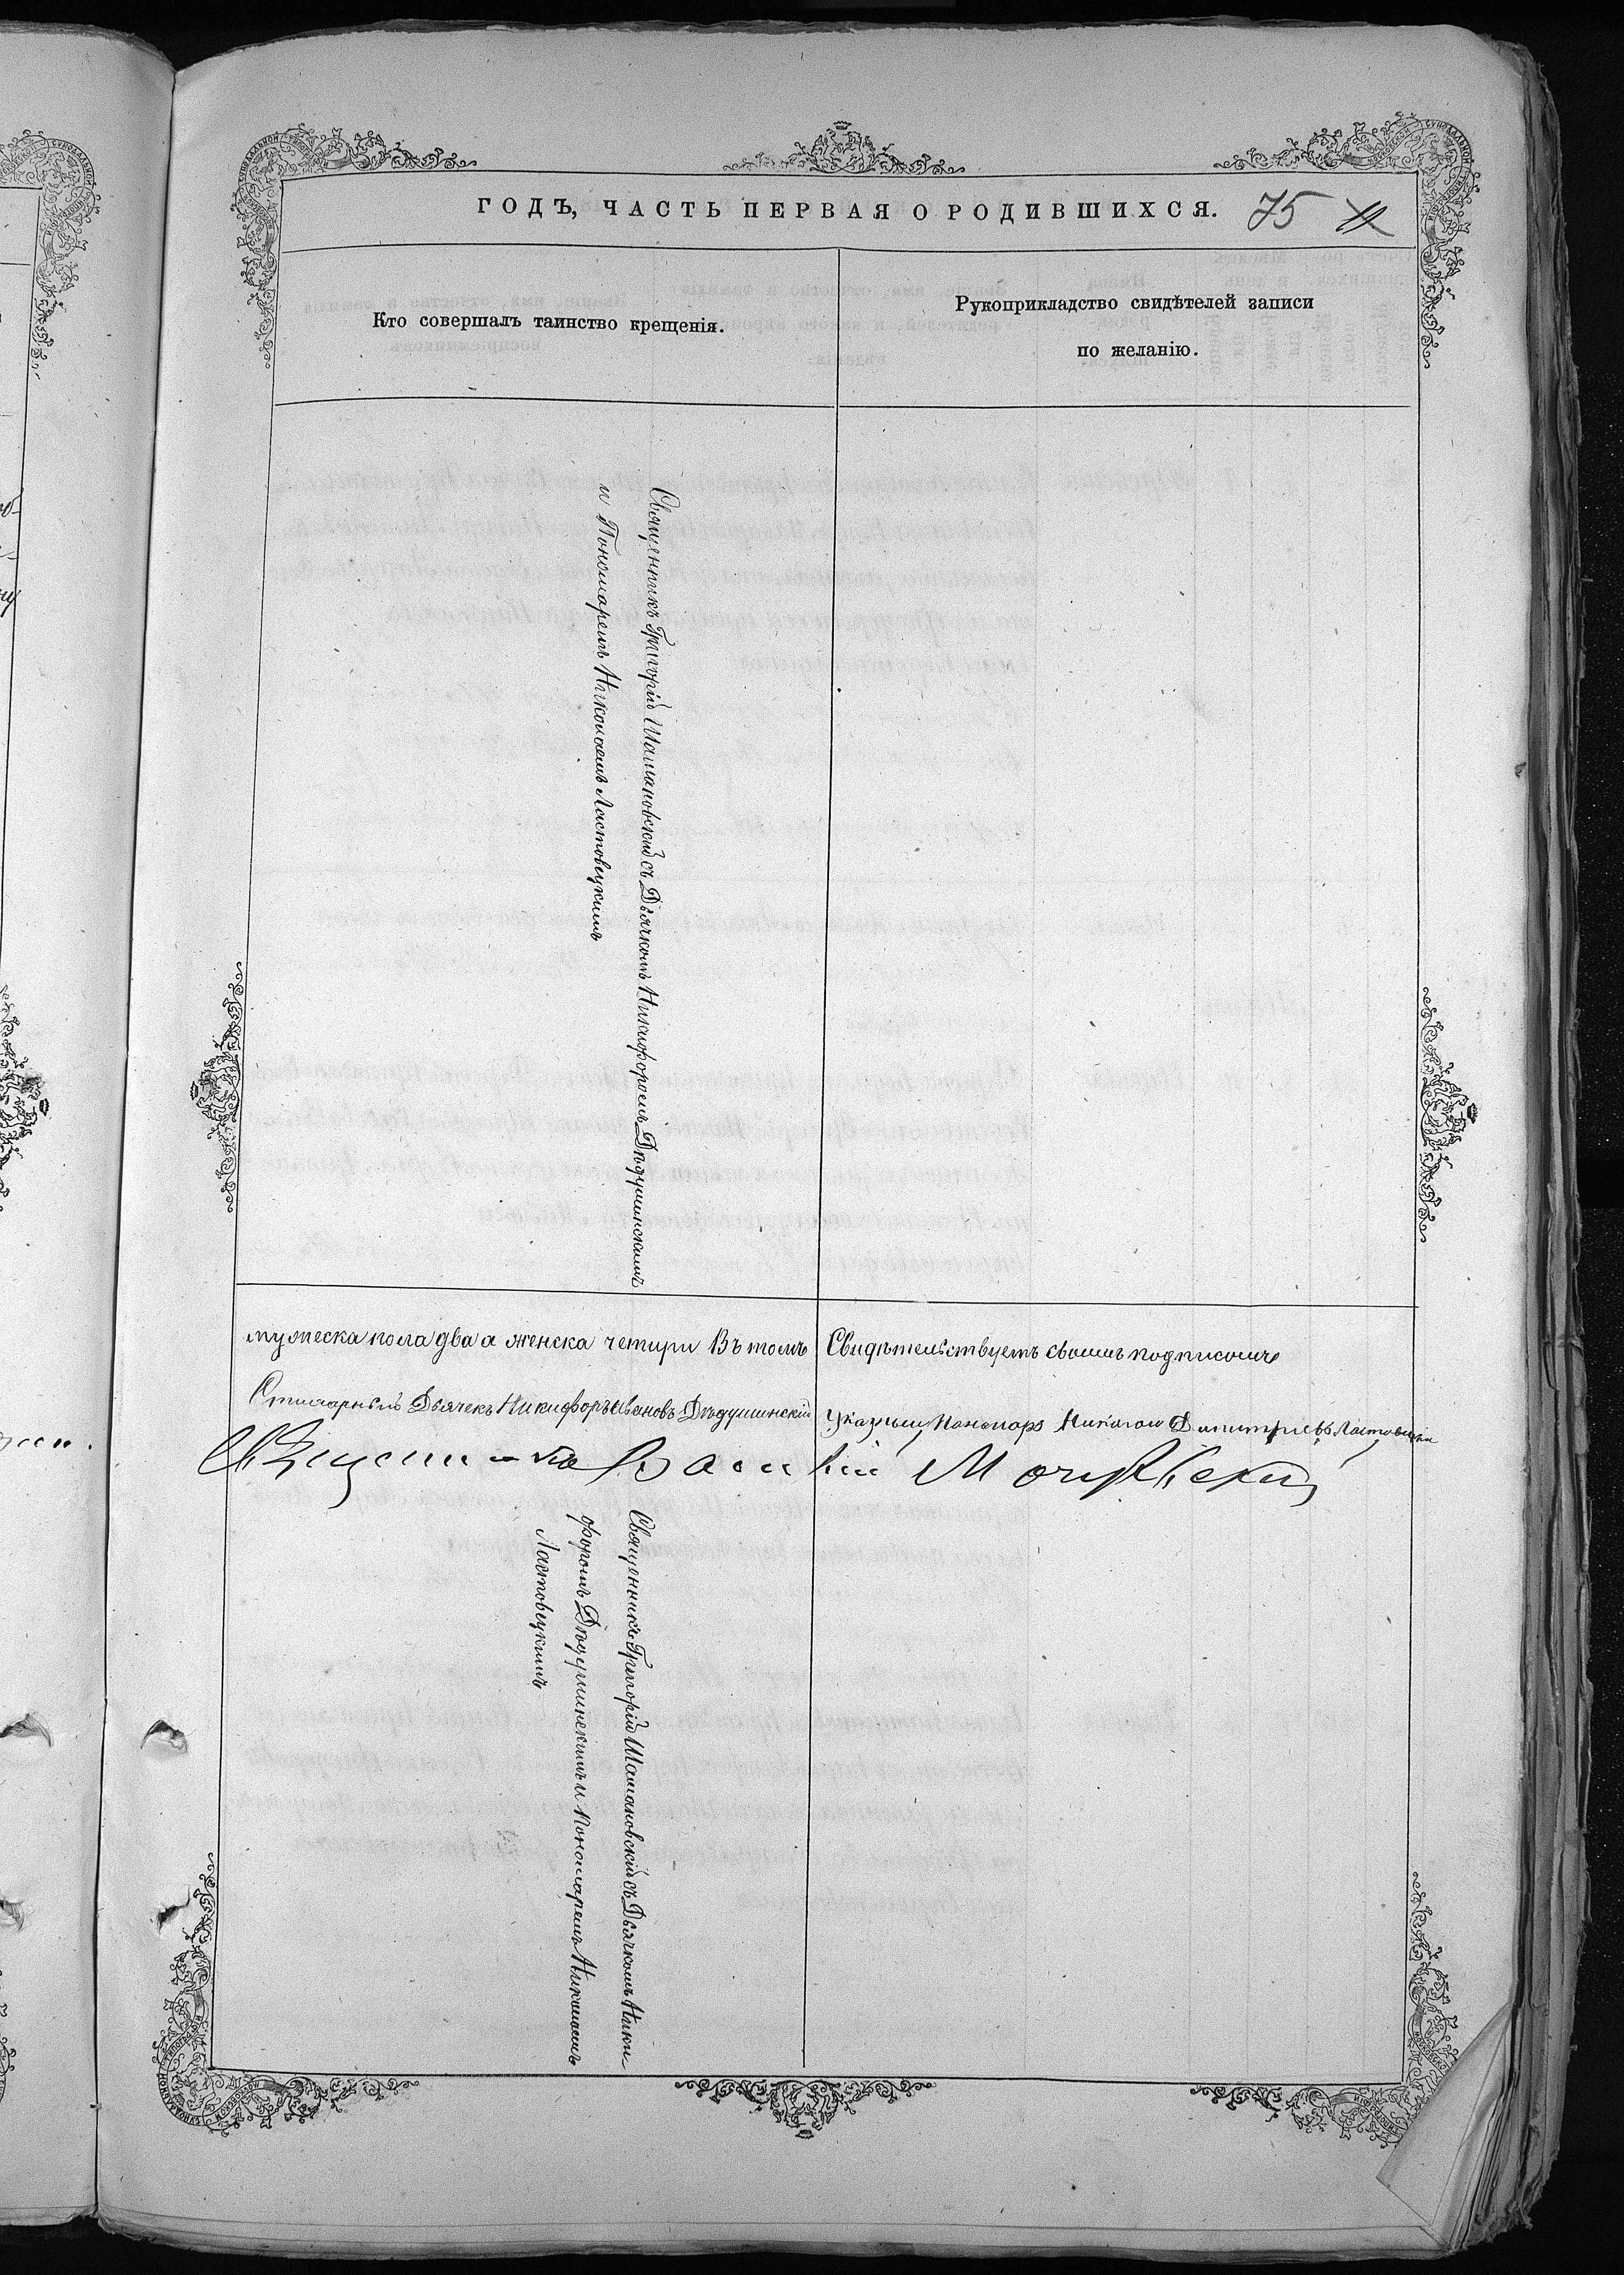 ГОДЪ, ЧАСТЬ ПЕРВАЯ О РОДИВШИХСЯ. 75
Кто совершалъ таинство крещенія.
Рукоприкладство свидѣтелей записи
по желанію.
Священникъ Григорій Шатановскій съ Дьячкомъ Никифоромъ Дѣдушинскимъ
и Пономаремъ Николаемъ Ластовецкимъ
мужеска пола два а женска четыри Въ томъ
Свидѣтельствуемъ своимъ подписомъ
Дьячекъ Никифоръ Ивановъ Дѣдушинскій
Указный Пономарь Николай Димитріевъ Ластовецкій
Священникъ
Священникъ Григорій Шатановскій съ Дьячкомъ Ники-
форомъ Дѣдушинскимъ и Пономаремъ Николаемъ
Ластовецкимъ